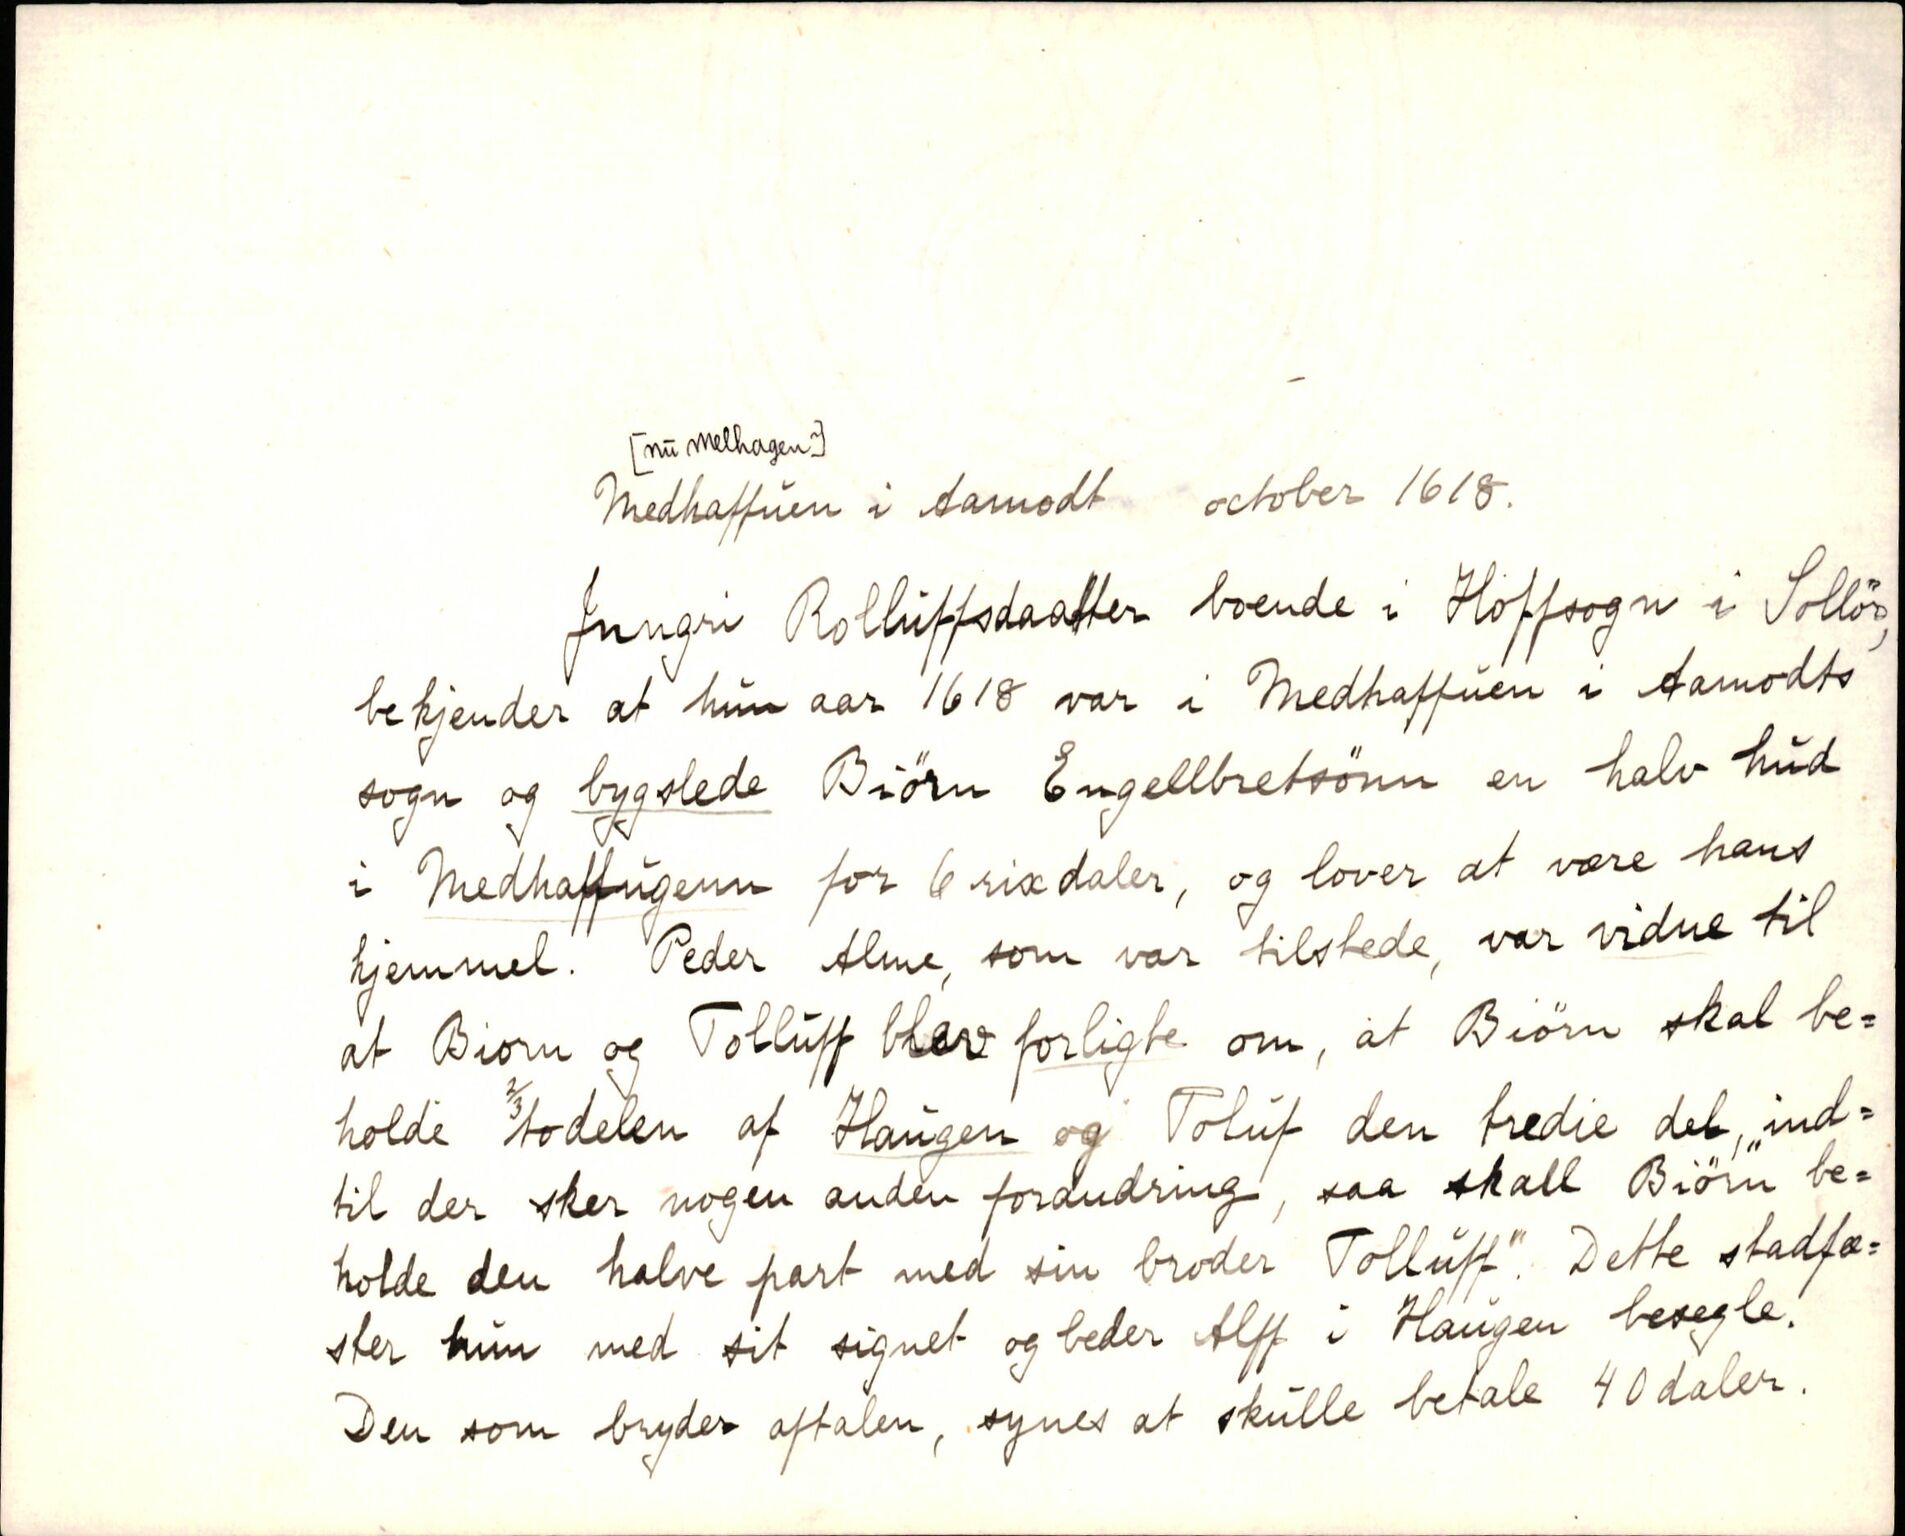 [nu Melhagen]
Medhaffuen i Aamodt october 1618.
Jnngri Rolluffsdaatter boende i Hoffsogn i Sollör,
bekjender at hun aar 1618 var i Medhaffuen i Aamodts
sogn og bygslede Biörn Engellbretsönn en halv hud
i Medhaffugenn for 6 rixdaler, og lover at være hans
hjemmel. Peder Alme, som var tilstede, var vidne til
at Biorn og Tolluff blev forligte om, at Biörn skal be=
holde 2/3 todelen af Haugen og Toluf den tredie del, ind=
til der sker nogen anden forandring, saa skall Biörn "be=
holde den halve part med sin broder Tolluff". Dette stadfæ=
ster hun med sit signet og beder Alff i Haugen besegle.
Den som bryder aftalen, synes at skulle betale 40 daler.